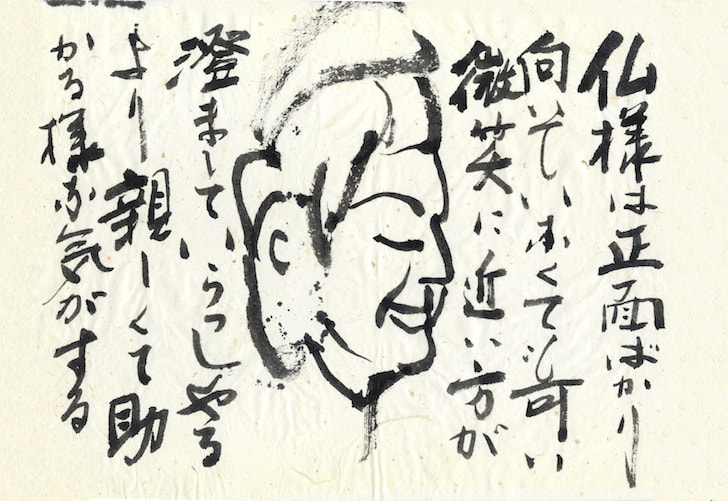 仏様は正面ばかり
向いていなくても可い
微笑に近い方が
澄ましていらっしやる
より親しくて助
かる様な気がする